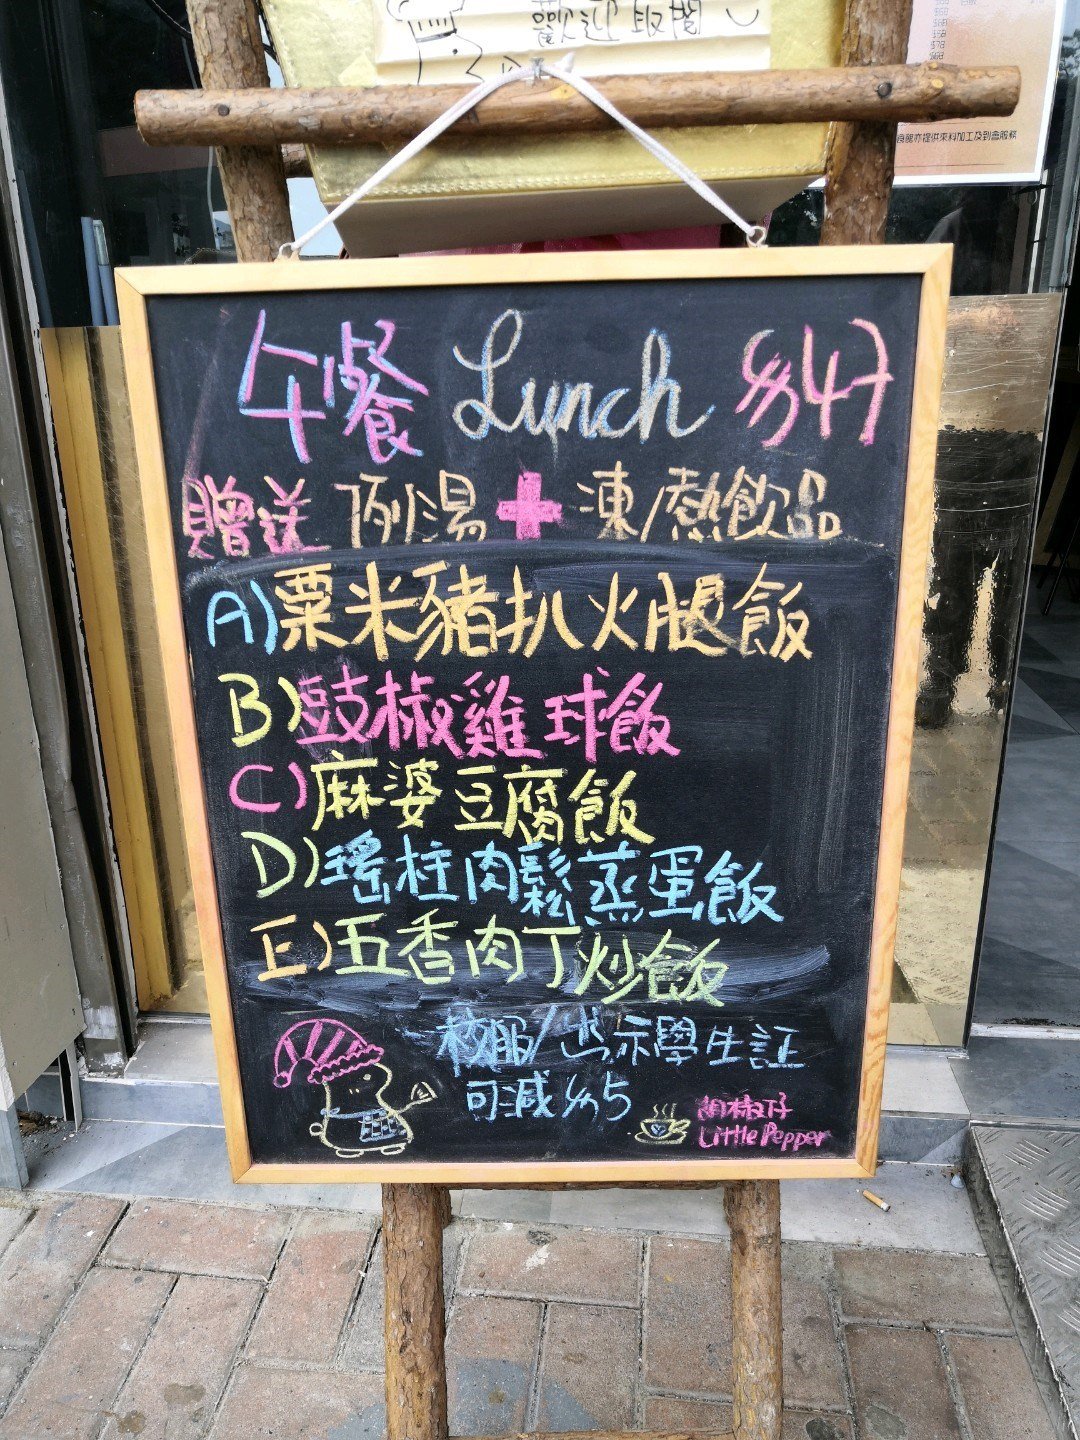 歡迎取閱
$68
$58
$78
食館亦提供來料加工及到會服務
午餐 Lunch $47
贈送 例湯 + 凍/熱飲品
A) 粟米豬扒火腿飯
B) 豉椒雞球飯
C) 麻婆豆腐飯
D) 瑤柱肉鬆蒸蛋飯
E) 五香肉丁炒飯
校服/出示學生証
可減$5
胡椒仔
Little Pepper